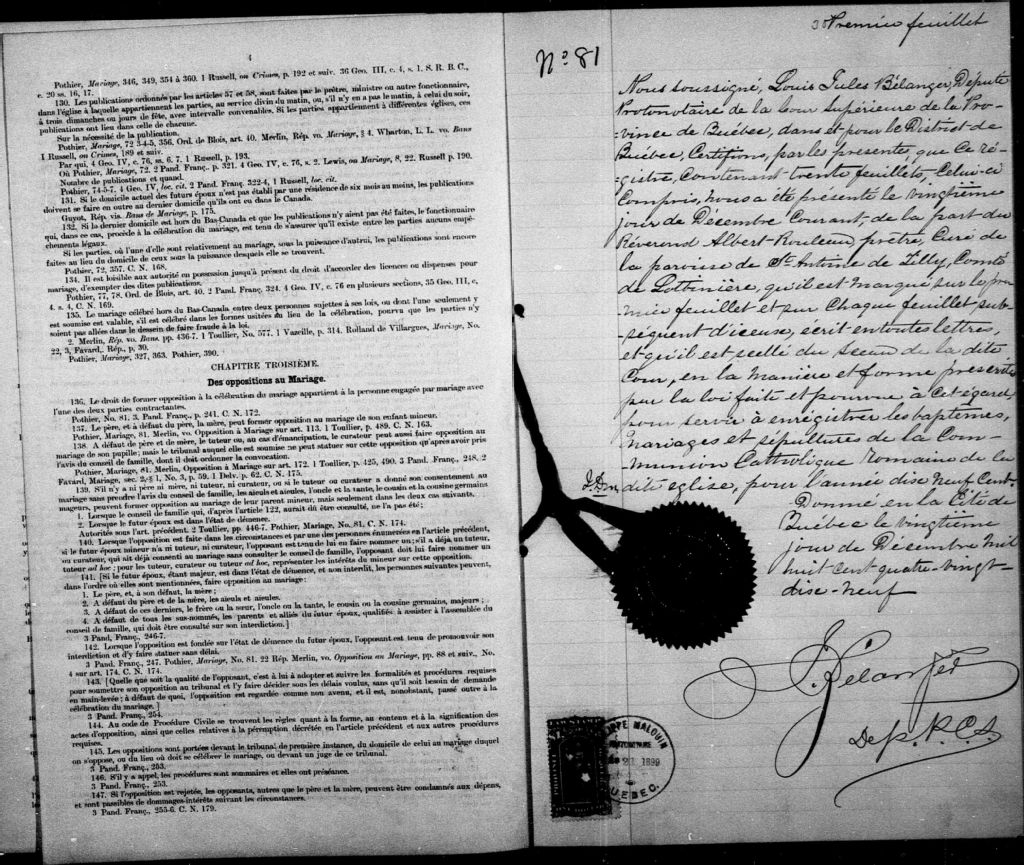 4
Pothier, Mariage, 346, 349, 354 à 360. 1 Russell, on Crimes, p. 192 et suiv. 36 Geo. III, c. 4, s. 1. S. R. B. C.,
c. 20 ss. 16, 17.
130. Les publications ordonnées par les articles 57 et 58, sont faites par le prêtre, ministre ou autre fonctionnaire,
dans l'église à laquelle appartiennent les parties, au service divin du matin, ou, s'il n'y en a pas le matin, à celui du soir,
à trois dimanches ou jours de fête, avec intervalle convenables. Si les parties appartiennent à différentes églises, ces
publications ont lieu dans celle de chacune.
Sur la nécessité de la publication.
Pothier, Mariage, 72 3-4-5, 356. Ord. de Blois, art. 40. Merlin, Rép. vo. Mariage, § 4. Wharton, L. L. vo. Bans
1 Russell, on Crimes, 189 et suiv.
Par qui, 4 Geo. IV, c. 76, ss. 6. 7. 1 Russell, p. 193.
Où Pothier, Mariage, 72. 2 Pand. Franç. p. 321. 4 Geo. IV, c. 76, s. 2. Lewis, on Mariage, 8, 22. Russell p. 190.
Nombre de publications et quand.
Pothier, 74-5-7. 4 Geo. IV, loc. cit. 2 Pand. Franç. 322-4, 1 Russell, loc. cit.
131. Si le domicile actuel des futurs époux n'est pas établi par une résidence de six mois au moins, les publications
doivent se faire en outre au dernier domicile qu'ils ont eu dans le Canada.
Guyot, Rép. vis. Bans de Mariage, p. 175.
132. Si la dernier domicile est hors du Bas-Canada et que les publications n'y aient pas été faites, le fonctionnaire
qui, dans ce cas, procède à la célébration du mariage, est tenu de s'assurer qu'il existe entre les parties aucuns empê-
chements légaux.
Si les parties, où l'une d'elle sont relativement au mariage, sous la puissance d'autrui, les publications sont encore
faites au lieu du domicile de ceux sous la puissance desquels elle se trouvent.
Pothier, 72, 357. C. N. 168.
134. Il est loisible aux autorité en possession jusqu'à présent du droit d'accorder des licences ou dispenses pour
mariage, d'exempter des dites publications.
Pothier, 77, 78. Ord. de Blois, art. 40. 2 Pand. Franç. 324. 4 Geo. IV, c. 76 en plusieurs sections, 35 Geo. III, c.
4. s. 4, C. N. 169.
135. Le mariage célébré hors du Bas-Canada entre deux personnes sujettes à ses lois, ou dont l'une seulement y
est soumise est valable, s'il est célébré dans les formes usitées au lieu de la célébration, pourvu que les parties n'y
soient pas allées dans le dessein de faire fraude à la loi.
2. Merlin, Rép. vo. Bans. pp. 436-7. 1 Toullier, No. 577. 1 Vazeille, p. 314. Rolland de Villargues, Mariage, No.
22, 3, Favard, Rép., p. 30.
Pothier, Mariage, 327, 363. Pothier, 390.
CHAPITRE TROISIÈME.
Des oppositions au Mariage.
136. Le droit de former opposition à la célébration du mariage appartient à la personne engagée par mariage avec
l'une des deux parties contractantes.
Pothier, No. 81. 3. Pand. Franç., p. 241. C. N. 172.
137. Le père, et à défaut du père, la mère, peut former opposition au mariage de son enfant mineur.
Pothier, Mariage, 81. Merlin, vo. Opposition à Mariage sur art. 113. 1 Toullier, p. 489. C. N. 163.
138. A défaut de père et de mère, le tuteur ou, au cas d'émancipation, le curateur peut aussi faire opposition au
mariage de son pupille; mais le tribunal auquel elle est soumise ne peut statuer sur cette opposition qu'après avoir pris
l'avis du conseil de famille, dont il doit ordonner la convocation.
Pothier, Mariage, 81. Merlin, Opposition à Mariage sur art. 172. 1 Toullier, p. 425, 490. 3 Pand. Franç., 248. 2
Favard, Mariage, sec. 2, § 1, No. 3, p. 59. 1 Delv. p. 62. C. N. 175.
139. S'il n'y a ni père ni mère, ni tuteur, ni curateur, ou si le tuteur ou curateur a donné son consentement au
mariage sans prendre l'avis du conseil de famille, les aïeuls et aïeules, l'oncle et la tante, le cousin et la cousine germains
mageures, peuvent former opposition au mariage de leur parent mineur, mais seulement dans les deux cas suivants.
1. Lorsque le conseil de famille qui, d'après l'article 122, aurait dû être consulté, ne l'a pas été;
2. Lorsque le futur époux est dans l'état de démence.
Autorités sous l'art. précédent. 2 Toullier, pp. 446-7. Pothier, Mariage, No. 81. C. N. 174.
140. Lorsque l'opposition est faite dans les circonstances et par une des personnes énumérées en l'article précédent,
si le futur époux mineur n'a ni tuteur, ni curateur, l'opposant est tenu de lui en faire nommer un; s'il a déjà un tuteur,
ou curateur, qui ait déjà consenti au mariage sans consulter le conseil de famille, l'opposant doit lui faire nommer un
tuteur ad hoc; pour les tuteur, curateur ou tuteur ad hoc, représenter les intérêts du mineur sur cette opposition.
141. [Si le futur époux, étant majeur, est dans l'état de démence, et non interdit, les personnes suivantes peuvent,
dans l'ordre où elles sont mentionnées, faire opposition au mariage:
1. Le père, et, à son défaut, la mère;
2. A défaut du père et de la mère, les aieuls et aieules.
3. A défaut de ces derniers, le frère ou la sœur, l'oncle ou la tante, le cousin ou la cousine germains, majeurs;
4. A défaut de tous les sus-nommés, les parents et alliés du futur époux, qualifiés à assister à l'assemblée du
conseil de famille, qui doit être consulté sur son interdiction.]
3 Pand. Franç., 246-7.
142. Lorsque l'opposition est fondée sur l'état de démence du futur époux, l'opposant est tenu de promouvoir son
interdiction et d'y faire statuer sans délai.
3 Pand. Franç., 247. Pothier, Mariage, No. 81. 22 Rép. Merlin, vo. Opposition au Mariage, pp. 88 et suiv., No.
4 sur art. 174. C. N. 174.
143. [Quelle que soit la qualité de l'opposant, c'est à lui à adopter et suivre les formalités et procédures requises
pour soumettre son opposition au tribunal et l'y faire décider sous les délais voulus, sans qu'il soit besoin de demande
en main-levée; à défaut de quoi, l'opposition est regardée comme non avenu, et il est, nonobstant, passé outre à la
célébration du mariage.]
3 Pand. Franç., 254.
144. Au code de Procédure Civile se trouvent les règles quant à la forme, au contenu et à la signification des
actes d'opposition, ainsi que celles relatives à la péremption décrétée en l'article précédent et aux autres procédures
requises.
145. Les oppositions sont portées devant le tribunal de première instance, du domicile de celui au mariage duquel
on s'oppose, ou du lieu où doit se célébrer le mariage, ou devant un juge de ce tribunal.
3 Pand. Franç., 253.
146. S'il y a appel, les procédures sont sommaires et elles ont préséance.
3 Pand. Franç., 253.
147. Si l'opposition est rejetée, les opposants, autres que le père et la mère, peuvent être condamnés aux dépens,
et sont passibles de dommages-intérêts suivant les circonstances.
3 Pand. Franç., 255-6. C. N. 179.
30 Premier feuillet
No 81
Nous soussigné, Louis Jules Bélanger, Député
Protonotaire de la Cour Supérieure de la Pro-
-vince de Québec, dans et pour le District de
Québec, Certifions, par les présente, que Ce ré-
-gistre, Contenant trente feuillets, Celui-ci
Compris, nous a été présenté le vingtième
jour de Décembre Courant, de la part du
Révérend Albert Rouleau, prêtre, Curé de
la paroisse de St. Antoine de Tilly, Comté
de Lotbinière, qu'il est marqué sur le pre-
mier feuillet et sur Chaque feuillet sub-
-séquent d'iceux, écrit en toutes lettres,
et qu'il est scellé du Sceau de la dite
Cour, en la manière et forme prescrite
par la loi faite et pourvue à Cet égard,
pour servir à enrégistrer les baptêmes,
mariages et sépultures de la Com-
-munion Catholique Romaine de la
dite église, pour l'année dix neuf Cent.
Donné en la Cité de
Québec le vingtième
jour de Décembre mil
huit cent quatre-vingt-
dix-neuf
J. Belanger
Dep. P. C. S.
PPE MALOUIN
21 1899
QUEBEC.